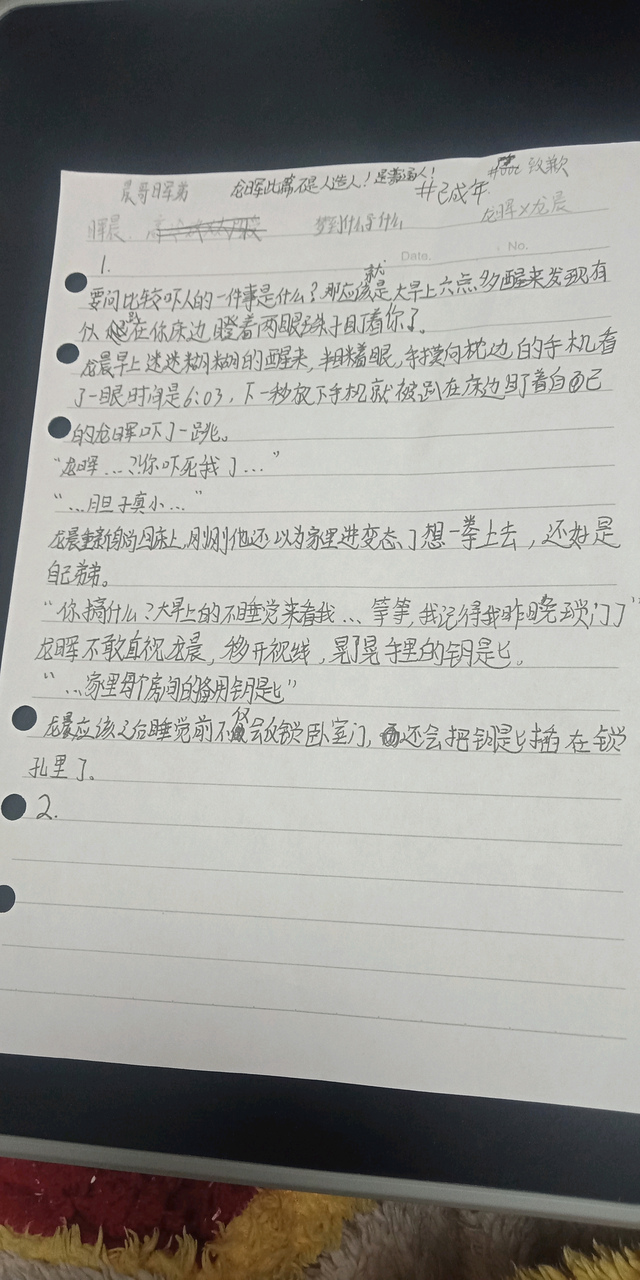 晨哥日晖弟
龙晖此篇不是人造人！是普通人！
#已成年
#ooc致歉
晖晨
梦到什么写什么
龙晖×龙晨
Date.
No.
1.
要问比较吓人的一件事是什么？那应该就是大早上六点多醒来发现有
人趴在你床边瞪着两眼珠子盯着你了。
龙晨早上迷迷糊糊的醒来，半眯着眼，手摸向枕边的手机看
了一眼时间是6:03，下一秒放下手机就被趴在床边盯着自己
的龙晖吓了一跳。
“龙晖…？你吓死我了…”
“…胆子真小…”
龙晨重新躺回床上，刚刚他还以为家里进变态了想一拳上去，还好是
自己弟弟。
“你搞什么？大早上的不睡觉来看我…等等，我记得我昨晚锁门了”
龙晖不敢直视龙晨，移开视线，晃了晃手里的钥匙。
“…家里每个房间的备用钥匙”
龙晨应该以后睡觉前不仅会反锁卧室门，还会把钥匙插在锁
孔里了。
2.